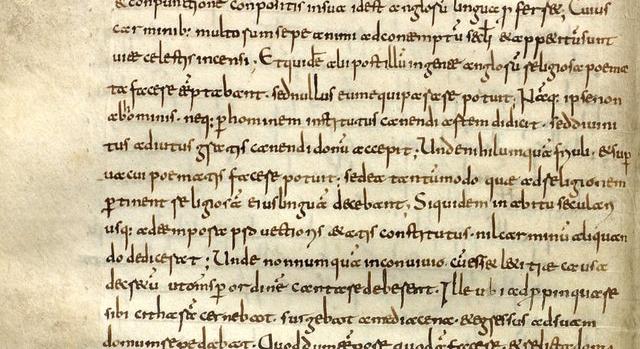 & conpunctione conpositis insua id est anglorū lingua pferret, Cuius
carminib; multorum sepe animi adcontemptū sc̄li &appetitū sunt
uitae celestis incensi; Et quidē alii post illū in gente anglorū religiosa poema
ta facere tēptabant. sed nullus eum equiparare potuit; Nāq; ipse non
ab hominib; neq; p hominem institutus canendi artem didicit. sed diuini
tus adiutus gratis canendi donū accepit; Unde nihil umquā friuoli &super
uacui poematis facere potuit. sed ea tantummodo quae ad religionem
pertinent religiosā eius linguā decebant; Siquidem in habitu seculari
usq; ad tempora prouectioris &atis constitutus. nil carminū aliquan
do dedicerat; Unde nonnumquā inconuiuio cū ess& l&itiae causa
decr&ū ut omīs per ordinē cantare deberent. Ille ubi adpropinquare
sibi citharā cernebat. surgebat amedia cena. &egressus ad suam
domum repedabat. Quod dum tempore quodā faceret. &relicta domu